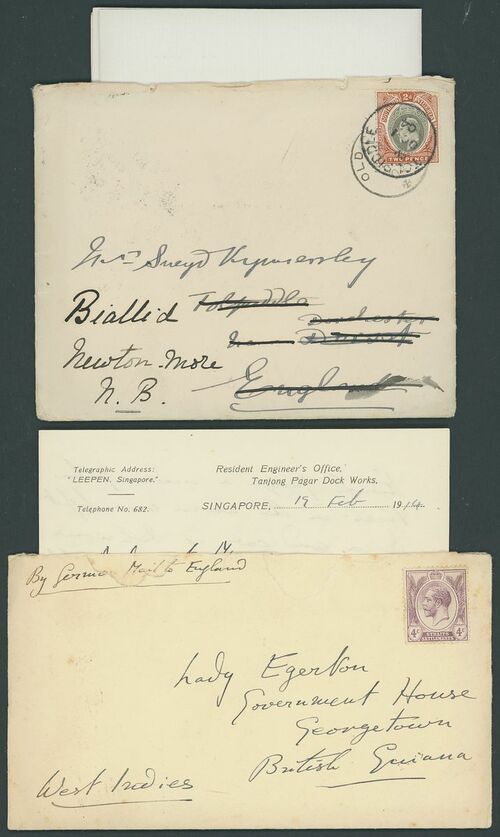 2d
SOUTHERN NIGERIA
TWO PENCE
OLD
Mrs Sneyd Kynnersley
Biallid Tolpuddle
Dorchester
Newton-More Dorset
N.B. England
Telegraphic Address:
"LEEPEN, Singapore."
Telephone No. 682.
Resident Engineer's Office,
Tanjong Pagar Dock Works,
SINGAPORE, 19 Feb 1914
By German Mail to England
4c 4c
Lady Egerton
Government House
Georgetown
British Guiana
West Indies